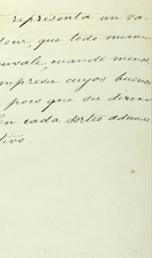 representa un va-
leor que todo nume
quivale, cuando menos,
mpresa cuyos buenos
poco que su direc
En cada sorteo ademas
tivo.